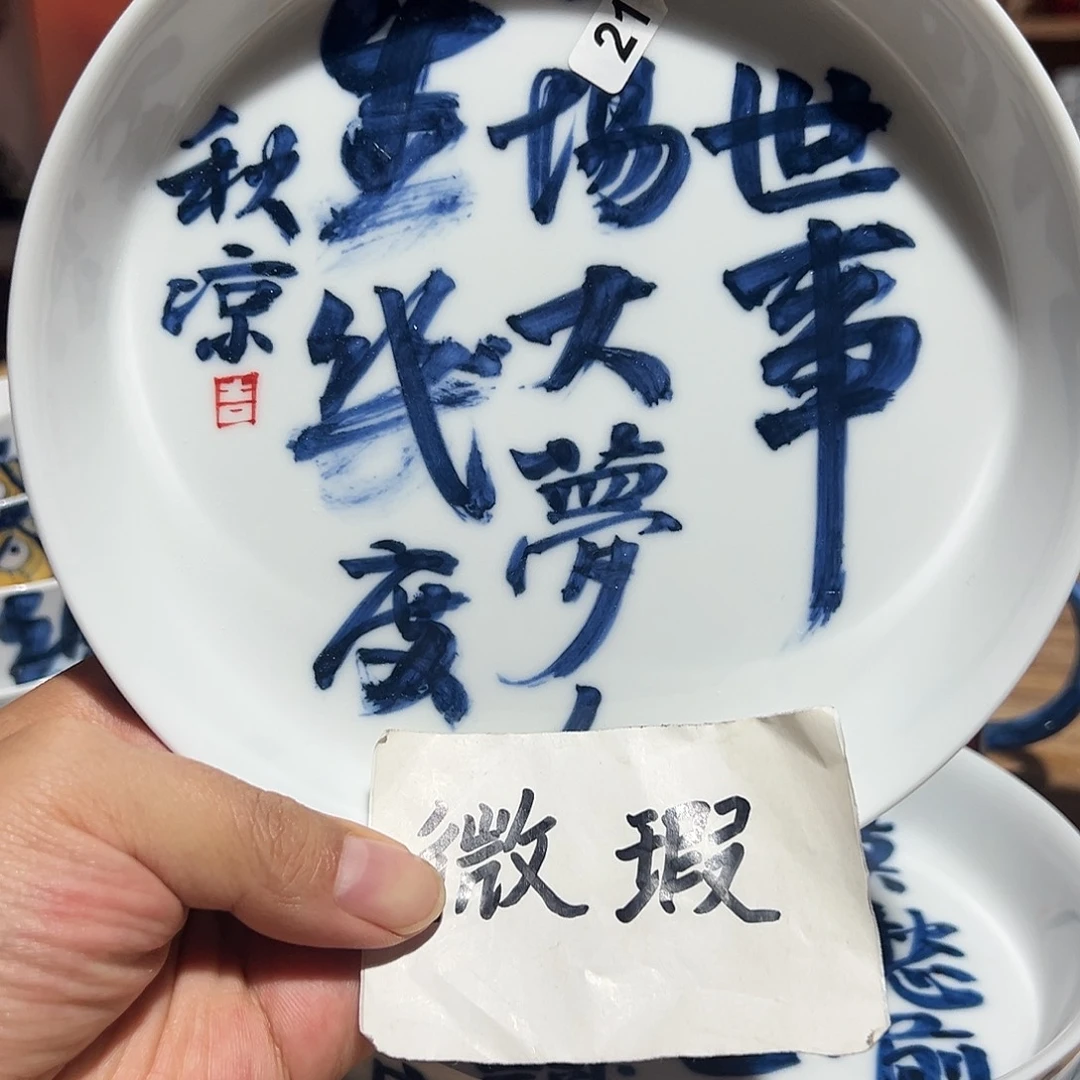 世事
場大夢
生幾度
秋凉
吉
21
微瑕